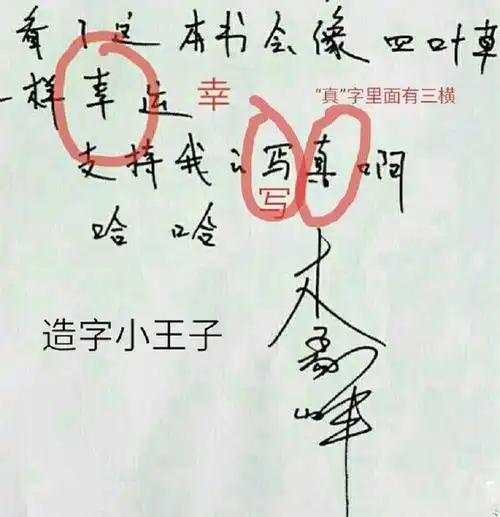 看了这本书会像四叶草
一样幸运 幸 “真”字里面有三横
支持我的写真啊
写
哈哈
造字小王子
李易峰